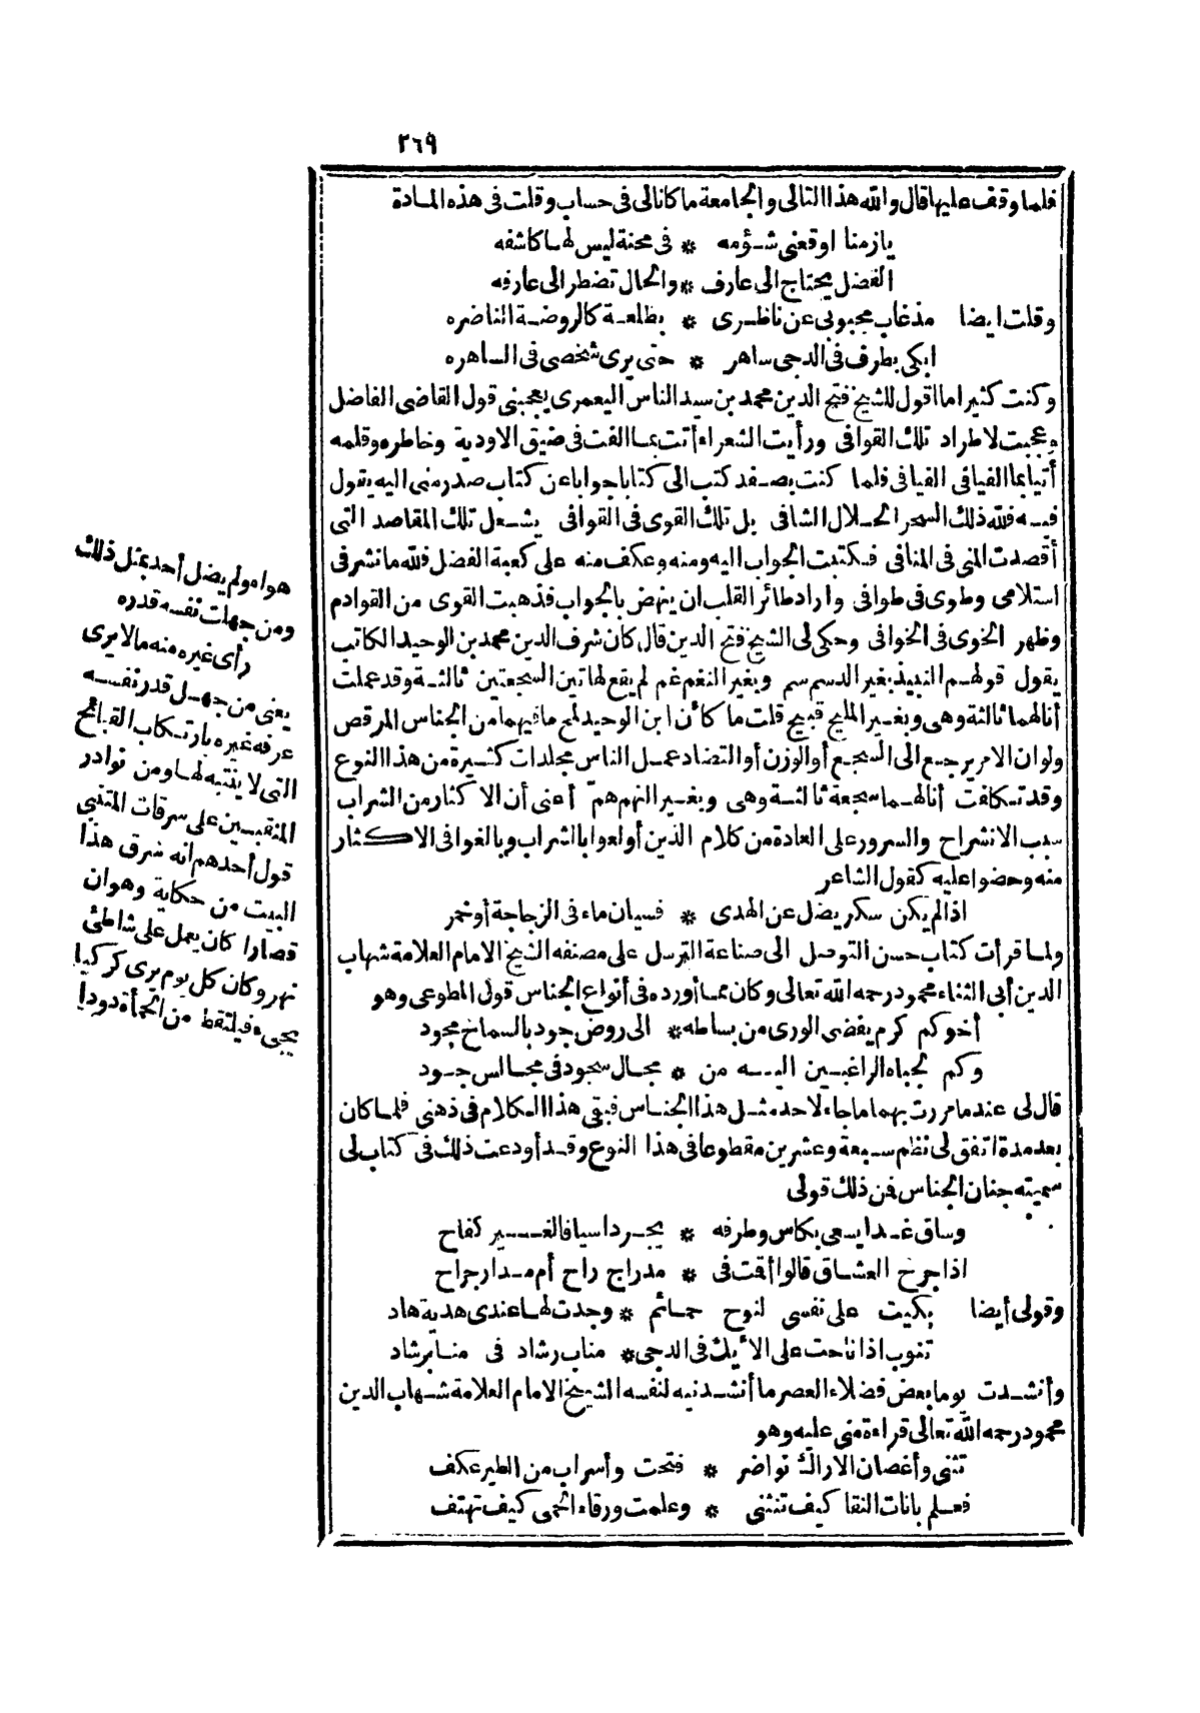 ٢٦٩
فلما وقف عليها قال والله هذا التالى والجامعة ما كانا لى فى حساب وقلت فى هذه المادة
يا زمنا اوقعنى شؤمه * فى محنة ليس لها كاشفه
الفضل يحتاج الى عارف * والحال تضطر الى عارفه
وقلت ايضا مذ غاب محبوبى عن ناظرى * بطلعة كالروضة الناضره
ابكى بطرف فى الدجى ساهر * حتى يرى شخصى فى الساهره
وكنت كثيرا ما اقول للشيخ فتح الدين محمد بن سيد الناس اليعمرى يعجبنى قول القاضى الفاضل
وعجبت لاطراد تلك القوافى ورأيت الشعراء أتت بما الفت فى ضيق الاودية وخاطره وقلمه
أتيا بما الفيافى الفيافى فلما كنت بصفد كتب الى كتابا جوابا عن كتاب صدر منى اليه يقول
فيه فلله ذلك السحر الحلال الشافى بل تلك القوى فى القوافى يشعل تلك المقاصد التى
أقصدت المنى فى المنافى فكتبت الجواب اليه ومنه وعكف منه على كعبة الفضل فلله ما نشر فى
استلامى وطوى فى طوافى وأراد طائر القلب ان ينهض بالجواب فذهبت القوى من القوادم
وظهر الخوى فى الخوافى وحكى لى الشيخ فتح الدين قال كان شرف الدين محمد بن الوحيد الكاتب
يقول قولهم النبيذ بغير الدسم سم وبغير النغم غم لم يقع لهاتين السجعتين ثالثة وقد عملت
أنا لهما ثالثة وهى وبغير المليح قبيح قلت ما كأن ابن الوحيد لمح ما فيهما من الجناس المرقص
ولو ان الامر يرجع الى السجع أو الوزن أو التضاد عمل الناس مجلدات كثيرة من هذا النوع
وقد تكلفت أنا لهما سجعة ثالثة وهى وبغير النهم هم أعنى أن الاكثار من الشراب
سبب الانشراح والسرور على العادة من كلام الذين أولعوا بالشراب وبالغوا فى الاكثار
منه وحضوا عليه كقول الشاعر
اذا لم يكن سكر يضل عن الهدى * فسيان ماء فى الزجاجة أو خمر
ولما قرأت كتاب حسن التوصل الى صناعة الترسل على مصنفه الشيخ الامام العلامة شهاب
الدين أبى الثناء محمود رحمه الله تعالى وكان مما أورده فى أنواع الجناس قول المطوعى وهو
أخوكم كرم يفضى الورى من بساطه * الى روض جود بالسماح مجود
وكم لجباه الراغبين اليه من * مجال سجود فى مجالس جود
قال لى عند ما مررت بهما ما جاء لاحد مثل هذا الجناس فبقى هذا الكلام فى ذهنى فلما كان
بعد مدة اتفق لى نظم سبعة وعشرين مقطوعا فى هذا النوع وقد أودعت ذلك فى كتاب لى
سميته جنان الجناس فمن ذلك قولى
وساق غدا يسعى بكاس وطرفه * يجرد اسيافا لغير كفاح
اذا جرح العشاق قالوا أقت فى * مدراج راح أم مدار جراح
وقولى أيضا بكيت على نفسى لنوح حمائم * وجدت لها عندى هدية هاد
تنوب اذا ناحت على الأيك فى الدجى * مناب رشاد فى منابر شاد
وأنشدت يوما بعض فضلاء العصر ما أنشدنيه لنفسه الشيخ الامام العلامة شهاب الدين
محمود رحمه الله تعالى قراءة منى عليه وهو
تثنى وأغصان الاراك نواضر * فنحت وأسراب من الطير عكف
فعلم بانات النقا كيف تنثنى * وعلمت ورقاء الحمى كيف تهتف
هواه ولم يضل أحد بمثل ذلك
ومن جهلت نفسه قدره
رأى غيره منه ما لا يرى
يعنى من جهل قدر نفسه
عرفه غيره بارتكاب القبائح
التى لا ينتبه لها ومن نوادر
المنقبين على سرقات المتنبى
قول أحدهم انه سرق هذا
البيت من حكاية وهو ان
قصارا كان يعمل على شاطئ
نهر وكان كل يوم يرى كركيا
يجىء فيلتقط من الحمأة دودا